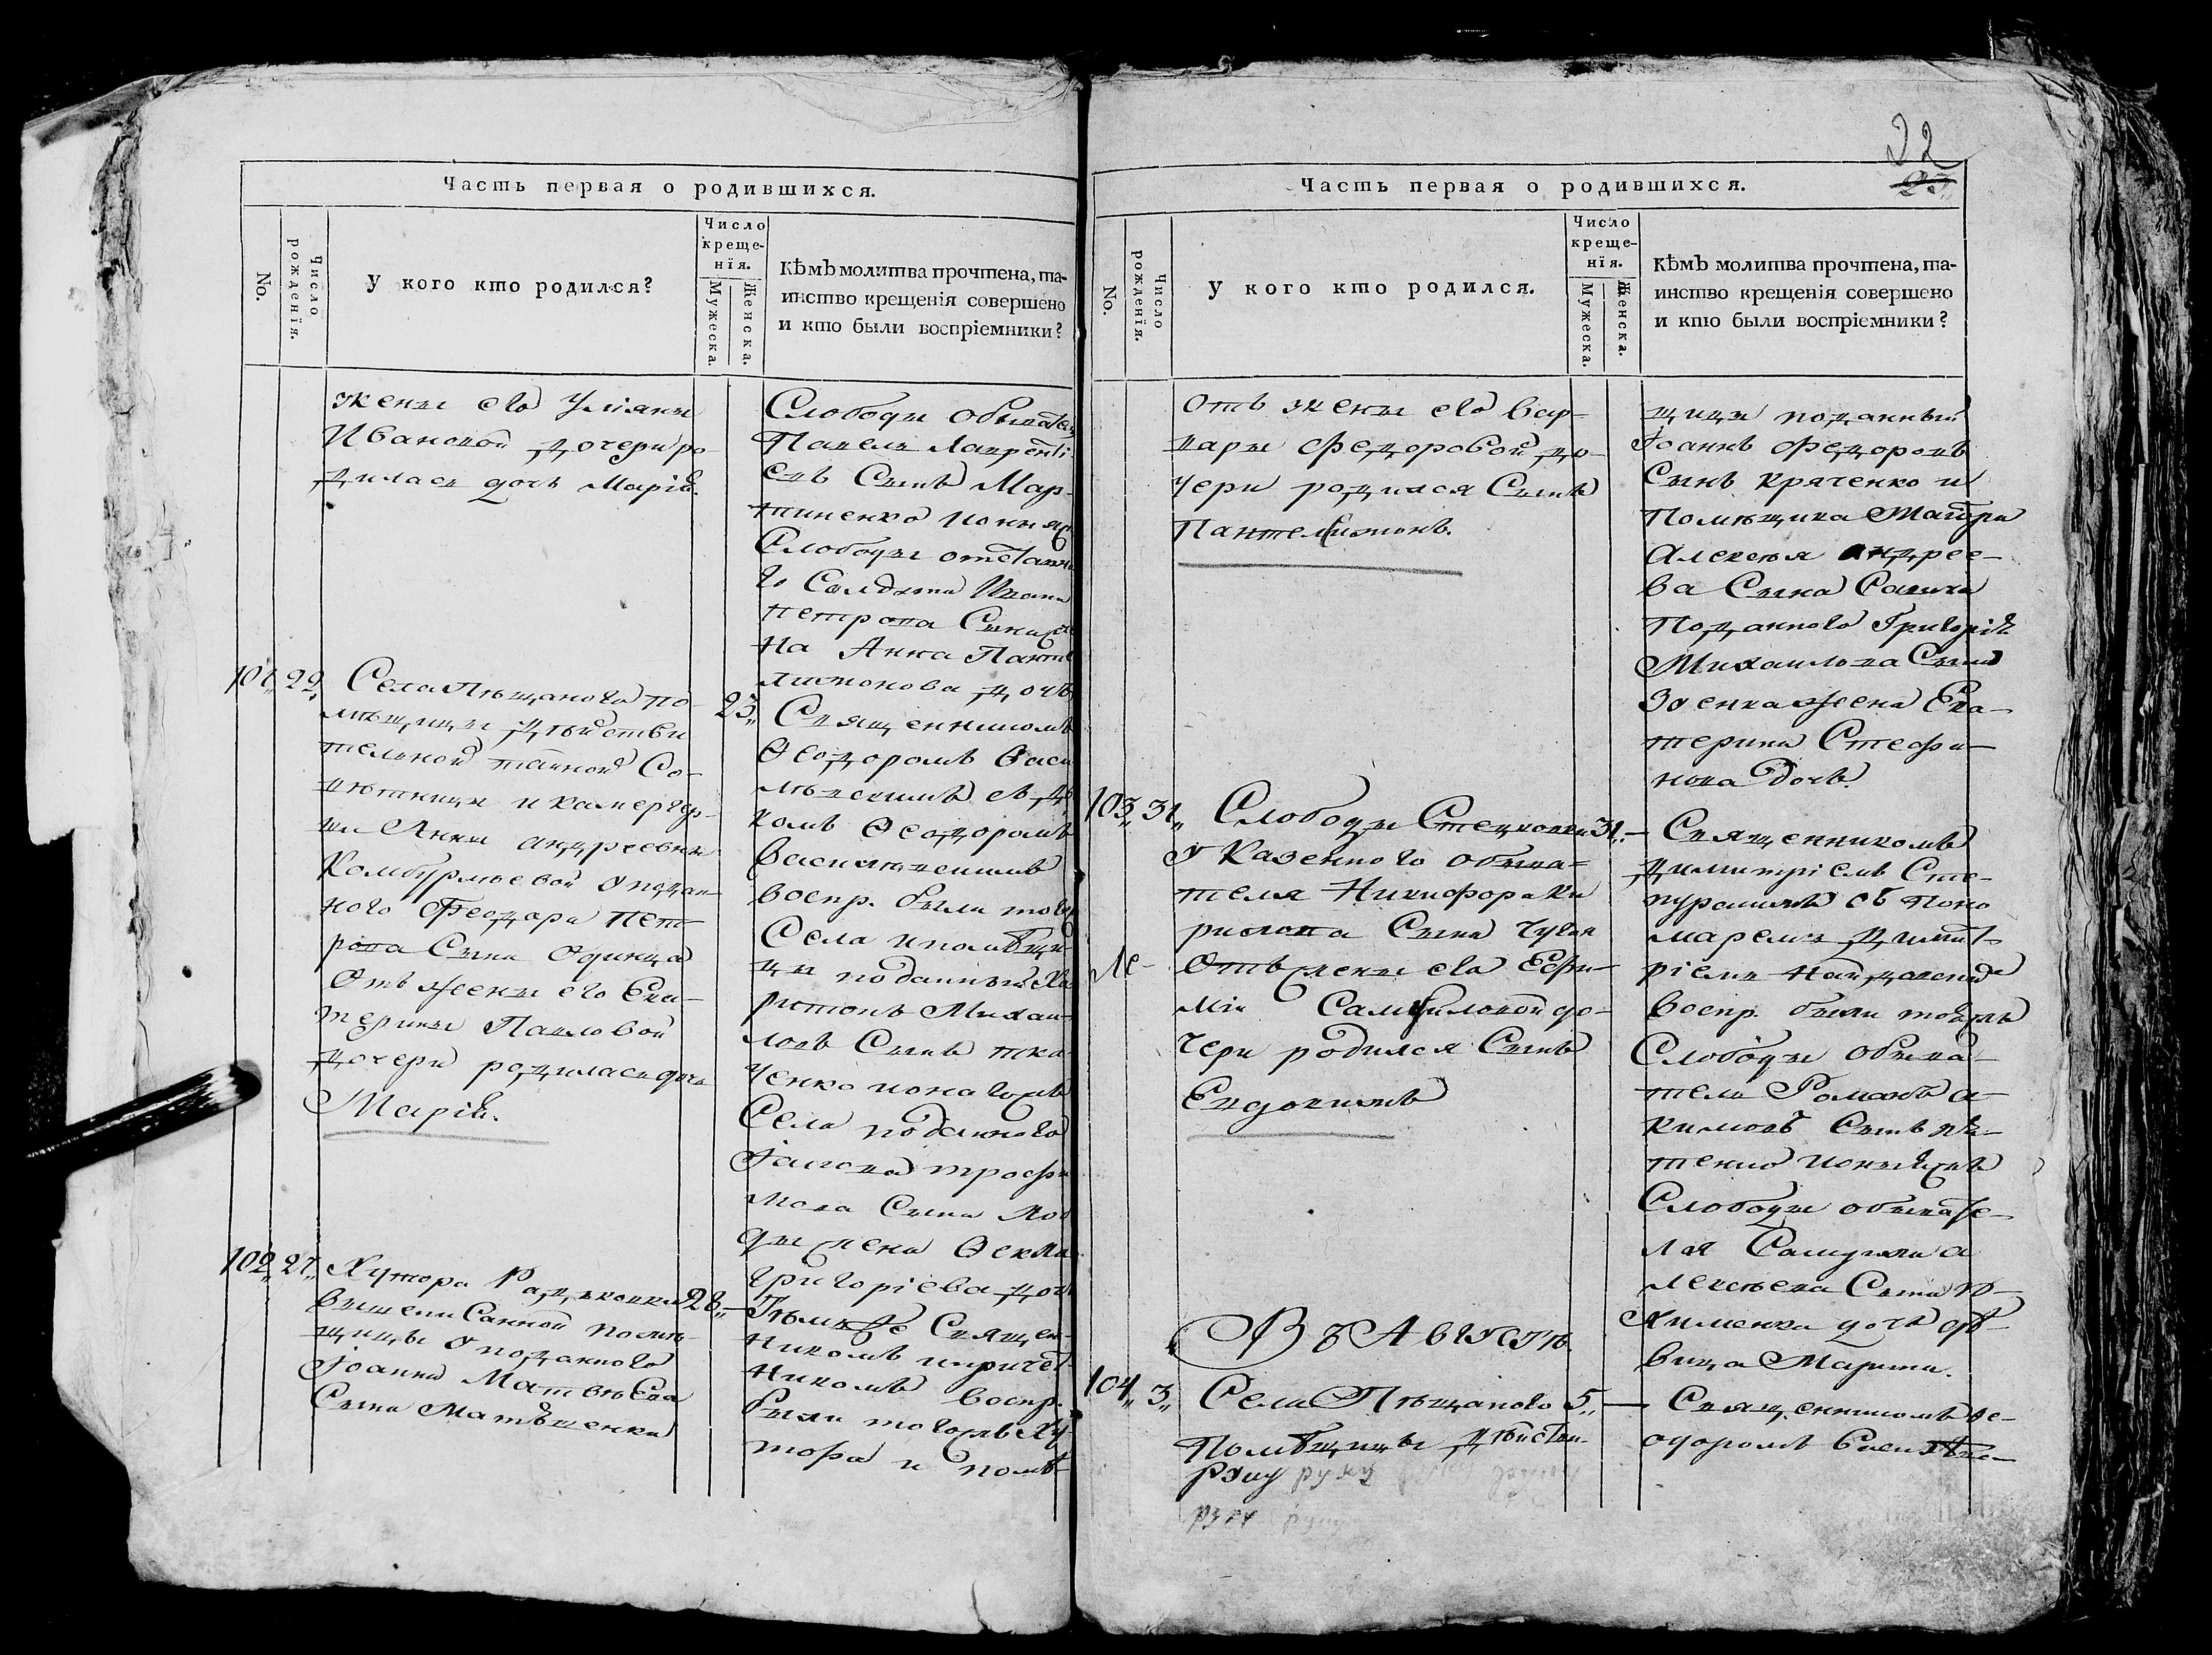 Часть первая о родившихся.
No.
Число рожденїя.
У кого кто родился?
Число крещенїя.
Мужеска.
Женска.
Кѣмъ молитва прочтена, та-
инство крещенія совершено
и кто были воспріемники?
жены его Уліяны
Ивановой дочери ро-
дилась дочь Марія.
Слободы обывател
Павелъ Лаврентї
евъ Сынъ Мар-
тиненко и оныя
Слободы отставн
го Солдата Ивана
Петрова Сына
на Анна Панте
лимонова дочь
101, 22,
Села Пѣщаного по-
мѣщицы дѣйстви
тельной тайной Со-
вѣтницы и камергер-
ши Анны андреевны
Комбурлѣевой у подан-
ного Феодора Пет-
рова Сына Одинца
Отъ жены его Ека-
терины Павловой
дочери родилась дочь
Марія.
23,
Священникомъ
Ѳеодоромъ Васи
комъ Ѳеодоромъ
воспр. были того
Села и помѣщи
цы поданный Ха
ритонъ Михаи
ловъ Сынъ тка
ченко и она гожъ
Села поданного
Іакова трофи
мова Сына
жена Ѳекла
Григоріева доч
102, 27,
Хутора
вышеписанной помѣ-
щицы у поданного
Іоанна Матвѣева
Сына Матвѣенка
28, —
Тѣмже Священ-
никомъ и причет
никомъ воспр.
были тогожъ Ху
тора и помѣ-
32
Часть первая о родившихся.
No.
Число рожденїя.
У кого кто родился.
Число крещенїя.
Мужеска.
Женска.
Кѣмъ молитва прочтена, та-
инство крещенія совершено
и кто были воспріемники?
отъ жены его Вар-
вары Федоровой до-
чери родился Сынъ
Пантелеимонъ.
щицы поданный
Іоаннъ Федоровъ
Сынъ Кряченко и
Помѣщика Маіора
Алексѣя андрее-
ва Сына Савича
Поданного Григорія
Михаилова Сына
жена Ека-
терина Стефа-
нова дочь.
103, 31,
Слободы Стецковки
У Казенного обыва-
теля Никифора Ки
рилова Сына
Отъ жены его Евфи-
міи Самуиловой до-
чери родился Сынъ
Евдокимъ
31, —
Священникомъ
Димитріемъ Сте-
пурскимъ съ Поно
маремъ Димит-
ріемъ
воспр. были тоежъ
Слободы обыва-
тель Романъ а-
кимовъ Сынъ
и оныяжъ
Слободы обывате-
ля Самуила а
лексѣева Сына
дочь дѣ-
вица Марина.
Въ Августѣ
104, 3,
Села Пѣщаного
Помѣщицы дѣйстви-
5, —
Священникомъ Ѳе-
одоромъ